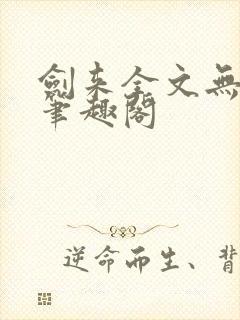 劍来全文無
筆趣閣
逆命而生、背